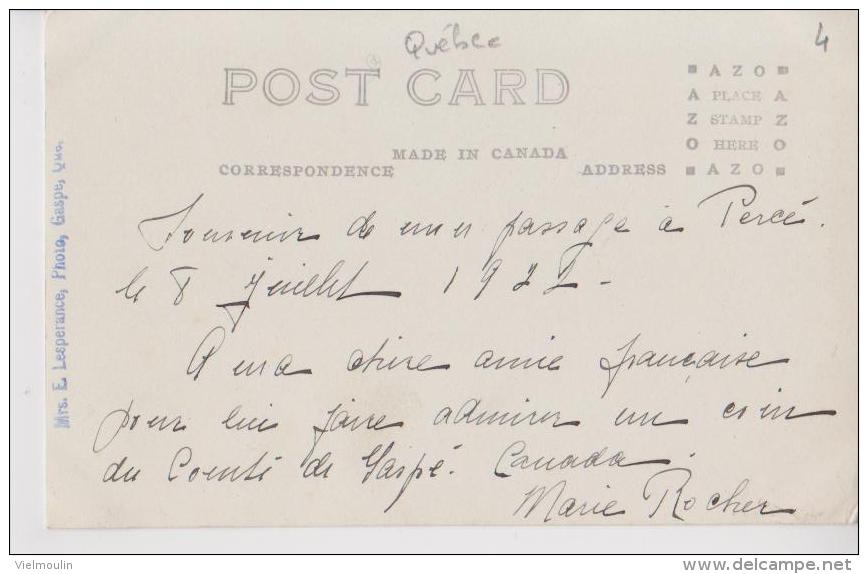 Québec
4
POST CARD
AZO
A PLACE A
Z STAMP Z
O HERE O
AZO
MADE IN CANADA
CORRESPONDENCE
ADDRESS
Mrs. E. Lesperance, Photo, Gaspe, Que.
Souvenir de mon passage à Percé.
le 8 Juillet 1922-
A ma chère amie française
pour lui faire admirer un coin
du Comté de Gaspé. Canada.
Marie Rocher
Vielmoulin
delcampe.net